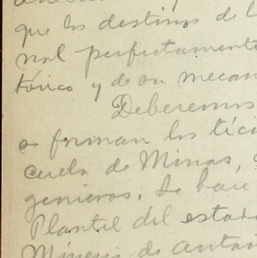 que los destinos de l
nal perfectamente
tórico y de su mecan
Deberemos
a forman los téc
cuela de Minas,
genieros. La base
Plantel del estad
Minería de antañ